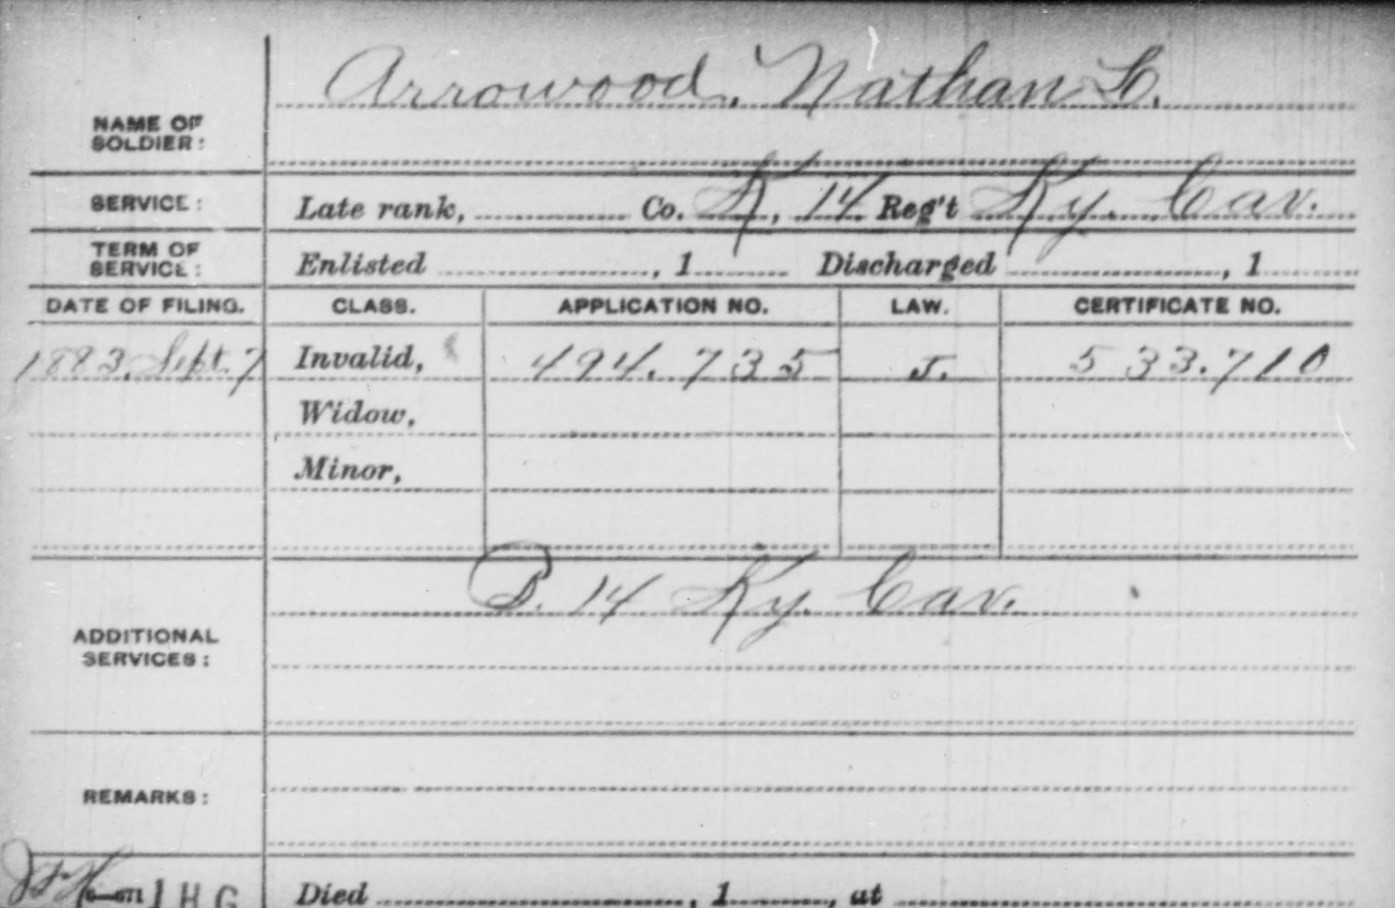 Arrowood, Nathan L.
NAME OF
SOLDIER:
SERVICE: Late rank, Co. K, 14 Reg't Ky. Cav.
TERM OF
SERVICE: Enlisted , 1 Discharged , 1
DATE OF FILING. CLASS. APPLICATION NO. LAW. CERTIFICATE NO.
1883. Sept. 7 Invalid, 494.735 J. 533.710
Widow,
Minor,
14 Ky. Cav.
ADDITIONAL
SERVICES:
REMARKS:
1 H G Died , 1 , at